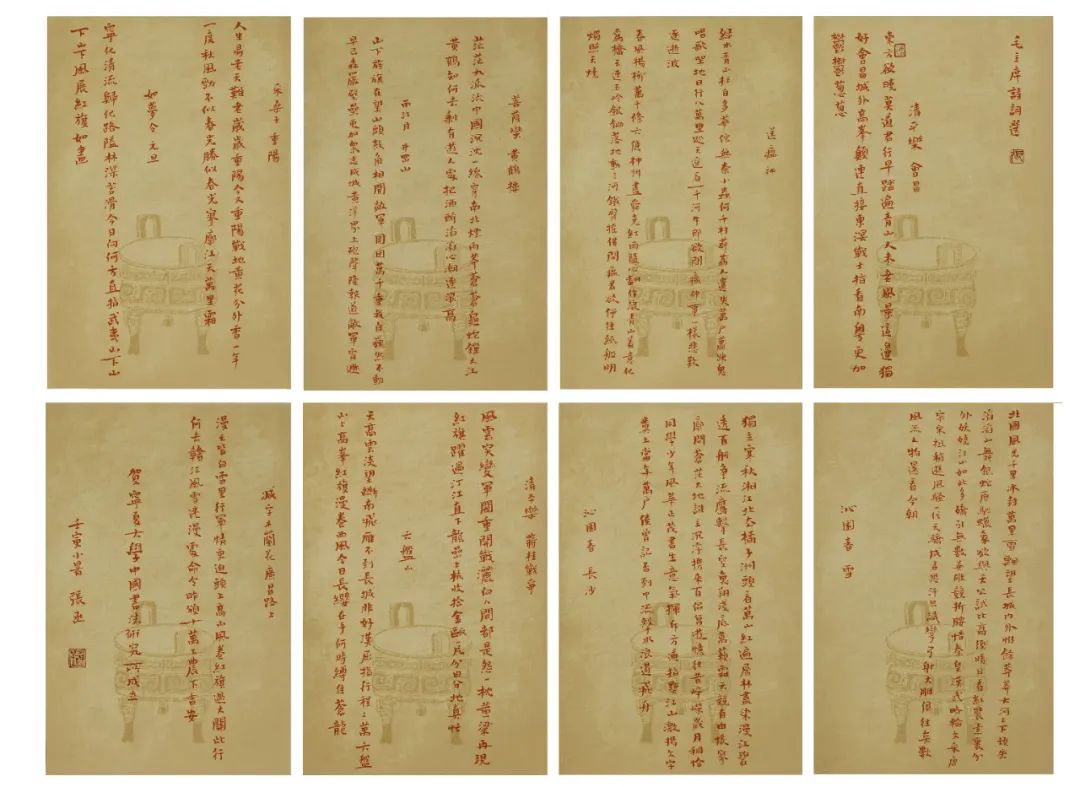 毛主席詩詞選
清平樂 會昌
東方欲曉莫道君行早踏遍青山人未老風景這邊獨
好會昌城外高峯顛連直接東溟戰士指看南粵更加
鬱鬱蔥蔥
送瘟神
綠水青山枉自多華佗無奈小蟲何千村薜荔人遺失萬戶蕭疏鬼
唱歌坐地日行八萬里巡天遙看一千河牛郎欲問瘟神事一樣悲歡
逐逝波
春風楊柳萬千條六億神州盡舜堯紅雨隨心翻作浪青山着意化
為橋天連五嶺銀鋤落地動三河鐵臂搖借問瘟君欲何往紙船明
燭照天燒
菩薩蠻 黃鶴樓
茫茫九派流中國沉沉一線穿南北煙雨莽蒼蒼龜蛇鎖大江
黃鶴知何去剩有遊人處把酒酹滔滔心潮逐浪高
西江月 井岡山
山下旌旗在望山頭鼓角相聞敵軍圍困萬千重我自巋然不動
早已森嚴壁壘更加眾志成城黃洋界上砲聲隆報道敵軍宵遁
采桑子 重陽
人生易老天難老歲歲重陽今又重陽戰地黃花分外香一年
一度秋風勁不似春光勝似春光寥廓江天萬里霜
如夢令 元旦
寧化清流歸化路隘林深苔滑今日向何方直指武夷山下山
下山下風展紅旗如畫
北國風光千里冰封萬里雪飄望長城內外惟餘莽莽大河上下頓失
滔滔山舞銀蛇原馳蠟象欲與天公試比高須晴日看紅裝素裹分
外妖嬈江山如此多嬌引無數英雄競折腰惜秦皇漢武略輸文采唐
宗宋祖稍遜風騷一代天驕成吉思汗只識彎弓射大雕俱往矣數
風流人物還看今朝
沁園春 雪
獨立寒秋湘江北去橘子洲頭看萬山紅遍層林盡染漫江碧
透百舸爭流鷹擊長空魚翔淺底萬類霜天競自由悵寥
廓問蒼茫大地誰主沉浮攜來百侶曾遊憶往昔崢嶸歲月稠恰
同學少年風華正茂書生意氣揮斥方遒指點江山激揚文字
糞土當年萬戶侯曾記否到中流擊水浪遏飛舟
沁園春 長沙
清平樂 蔣桂戰爭
風雲突變軍閥重開戰灑向人間都是怨一枕黃粱再現
紅旗躍過汀江直下龍岩上杭收拾金甌一片分田分地真忙
六盤山
天高雲淡望斷南飛雁不到長城非好漢屈指行程二萬六盤
山上高峯紅旗漫卷西風今日長纓在手何時縛住蒼龍
減字木蘭花 廣昌路上
漫天皆白雪里行軍情更迫頭上高山風卷紅旗過大關此行
何去贛江風雪迷漫處命令昨頒十萬工農下吉安
賀寧夏大學中國書法研究所成立
壬寅小暑 張